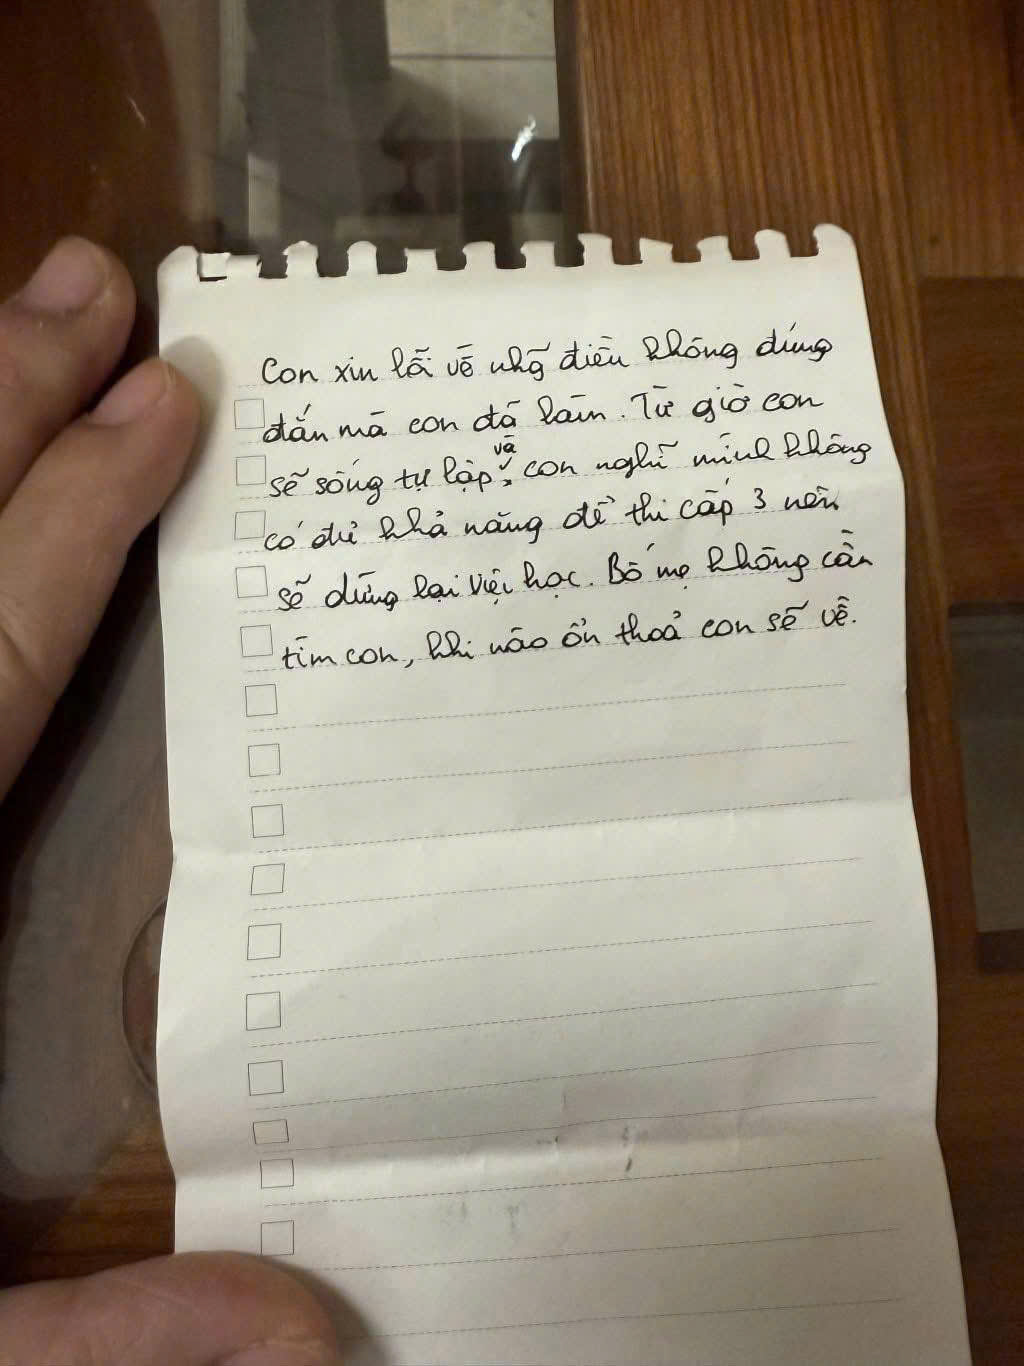 Con xin lỗi về nhg̃ điều không đúng
đắn mà con đã làm. Từ giờ con
sẽ sống tự lập và con nghĩ mình không
có đủ khả năng để thi cấp 3 nên
sẽ dừng lại việc học. Bố mẹ không cần
tìm con, khi nào ổn thoả con sẽ về.